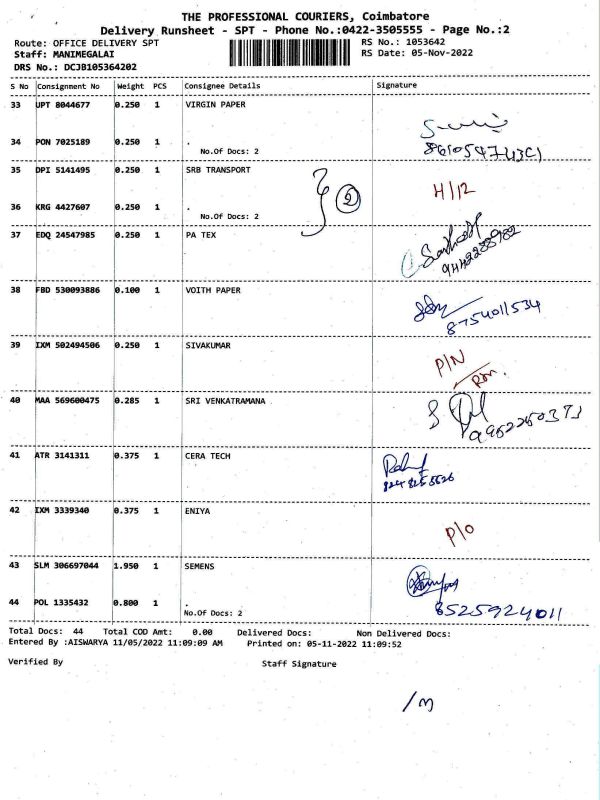 THE PROFESSIONAL COURIERS, Coimbatore
Delivery Runsheet - SPT - Phone No.:0422-3505555 - Page No.:2
Route: OFFICE DELIVERY SPT RS No.: 1053642
Staff: MANIMEGALAI RS Date: 05-Nov-2022
DRS No.: DCJB105364202
S No Consignment No Weight PCS Consignee Details Signature
33 UPT 8044677 0.250 1 VIRGIN PAPER
34 PON 7025189 0.250 1 .
No.Of Docs: 2
35 DPI 5141495 0.250 1 SRB TRANSPORT H/12
2
36 KRG 4427607 0.250 1 .
No.Of Docs: 2
37 EDQ 24547985 0.250 1 PA TEX
9442238982
38 FBD 530093886 0.100 1 VOITH PAPER
8754011534
39 IXM 502494506 0.250 1 SIVAKUMAR
P/N
40 MAA 569600475 0.285 1 SRI VENKATRAMANA
41 ATR 3141311 0.375 1 CERA TECH
42 IXM 3339340 0.375 1 ENIYA
P/O
43 SLM 306697044 1.950 1 SEMENS
44 POL 1335432 0.800 1 .
8525924011
No.Of Docs: 2
Total Docs: 44 Total COD Amt: 0.00 Delivered Docs: Non Delivered Docs:
Entered By :AISWARYA 11/05/2022 11:09:09 AM Printed on: 05-11-2022 11:09:52
Verified By Staff Signature
/m